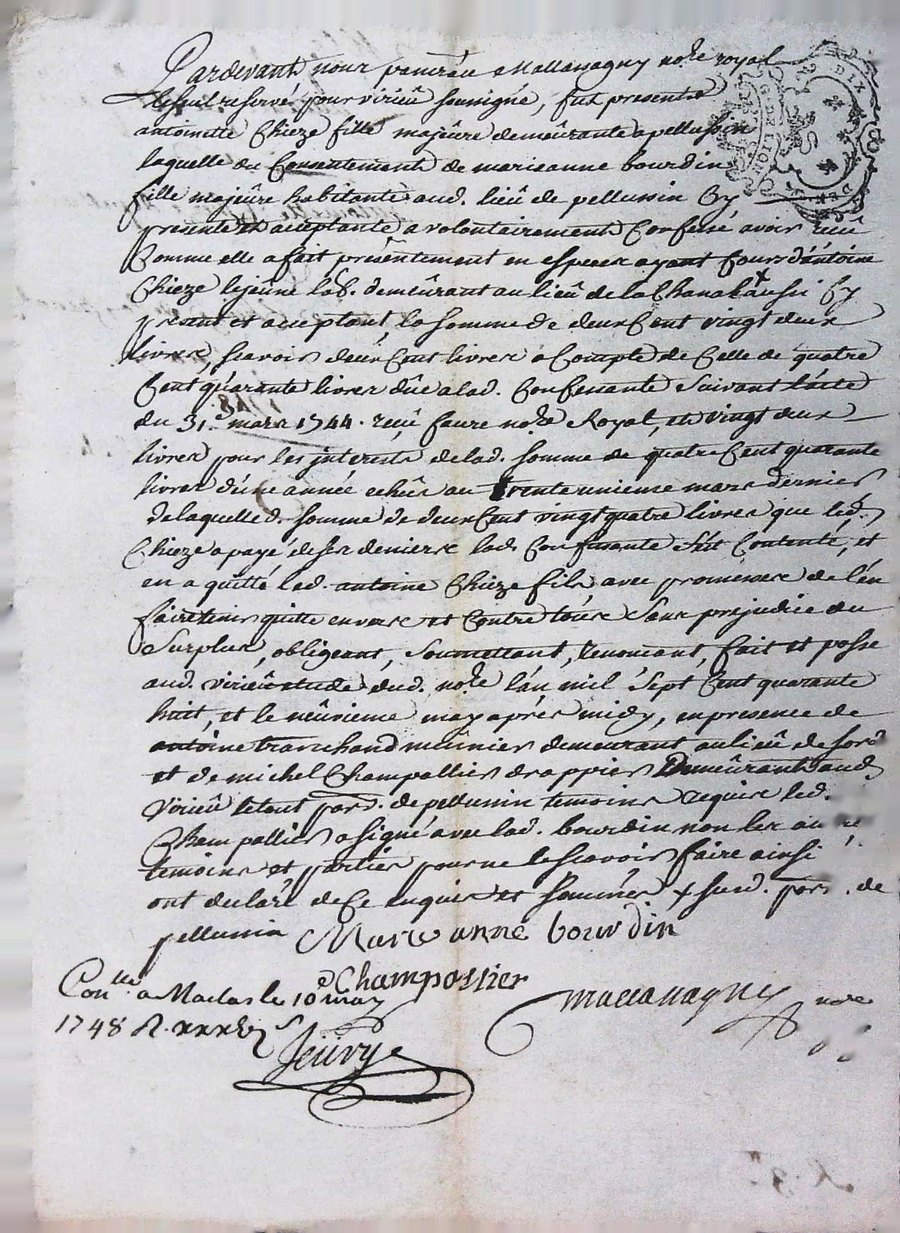 Pardevant nous pancrée Mallassagny no.re royal
le seul reservé pour virieu soussigné, fut presente
antoinette Chieze fille majeûre demeûrante a pellussin
laquelle du Consentement de marieanne bourdin
fille majeûre habitante aud. lieû de pellussin Cy
presente et aceptante a volontairement Confessé avoir reçû
Comme elle a fait présentement en especes ayant Cours d'antoine
Chieze lejeûne lab. demeûrant au lieû de la Chanal x aussi Cy
présent et aceptant, la somme de deux Cent vingt deux
livres, scavoir deux Cent livres a Compte de Celle de quatre
Cent quarante livres dûe a lad. Confessante Suivant l'acte
du 31.e mars 1744. reçû faure no.re Royal, et vingt deux
livres pour les interests de lad. somme de quatre Cent quarante
livres d'une année echûe au trente unieme mars dernier
de laquelle d. somme de deux Cent vingt quatre livres que led.
Chieze a payé de ses deniers lad. Confessante s'est Contenté, et
en a quitté led. antoine Chieze fils, avec promesse de l'en
faire tenir quitte envers et Contre toûs Sans prejudice du
Surplus, obligeant, Soumettant, renonçant, fait et passé
aud. virieû etude dud. no.re l'an mil Sept Cent quarante
huit, et le neûvieme may après midy, en presence de
antoine tranchand meûnier demeurant au lieû de
et de michel Champallier drappier Demeûrant aud.
Virieû le tout par.d. de pellussin temoins requis led.
Champallier a signé avec lad. bourdin non les autre
temoins et parties pour ne le scavoir faire ainsi
ont declaré de Ce enquis et sommés x surd. par. de
pellussin
Marie anne bourdin
Champallier
Mallassagny no.re
Con.llé a Maclas le 10e may
1748 R.
DIX DEN
G. DE LION